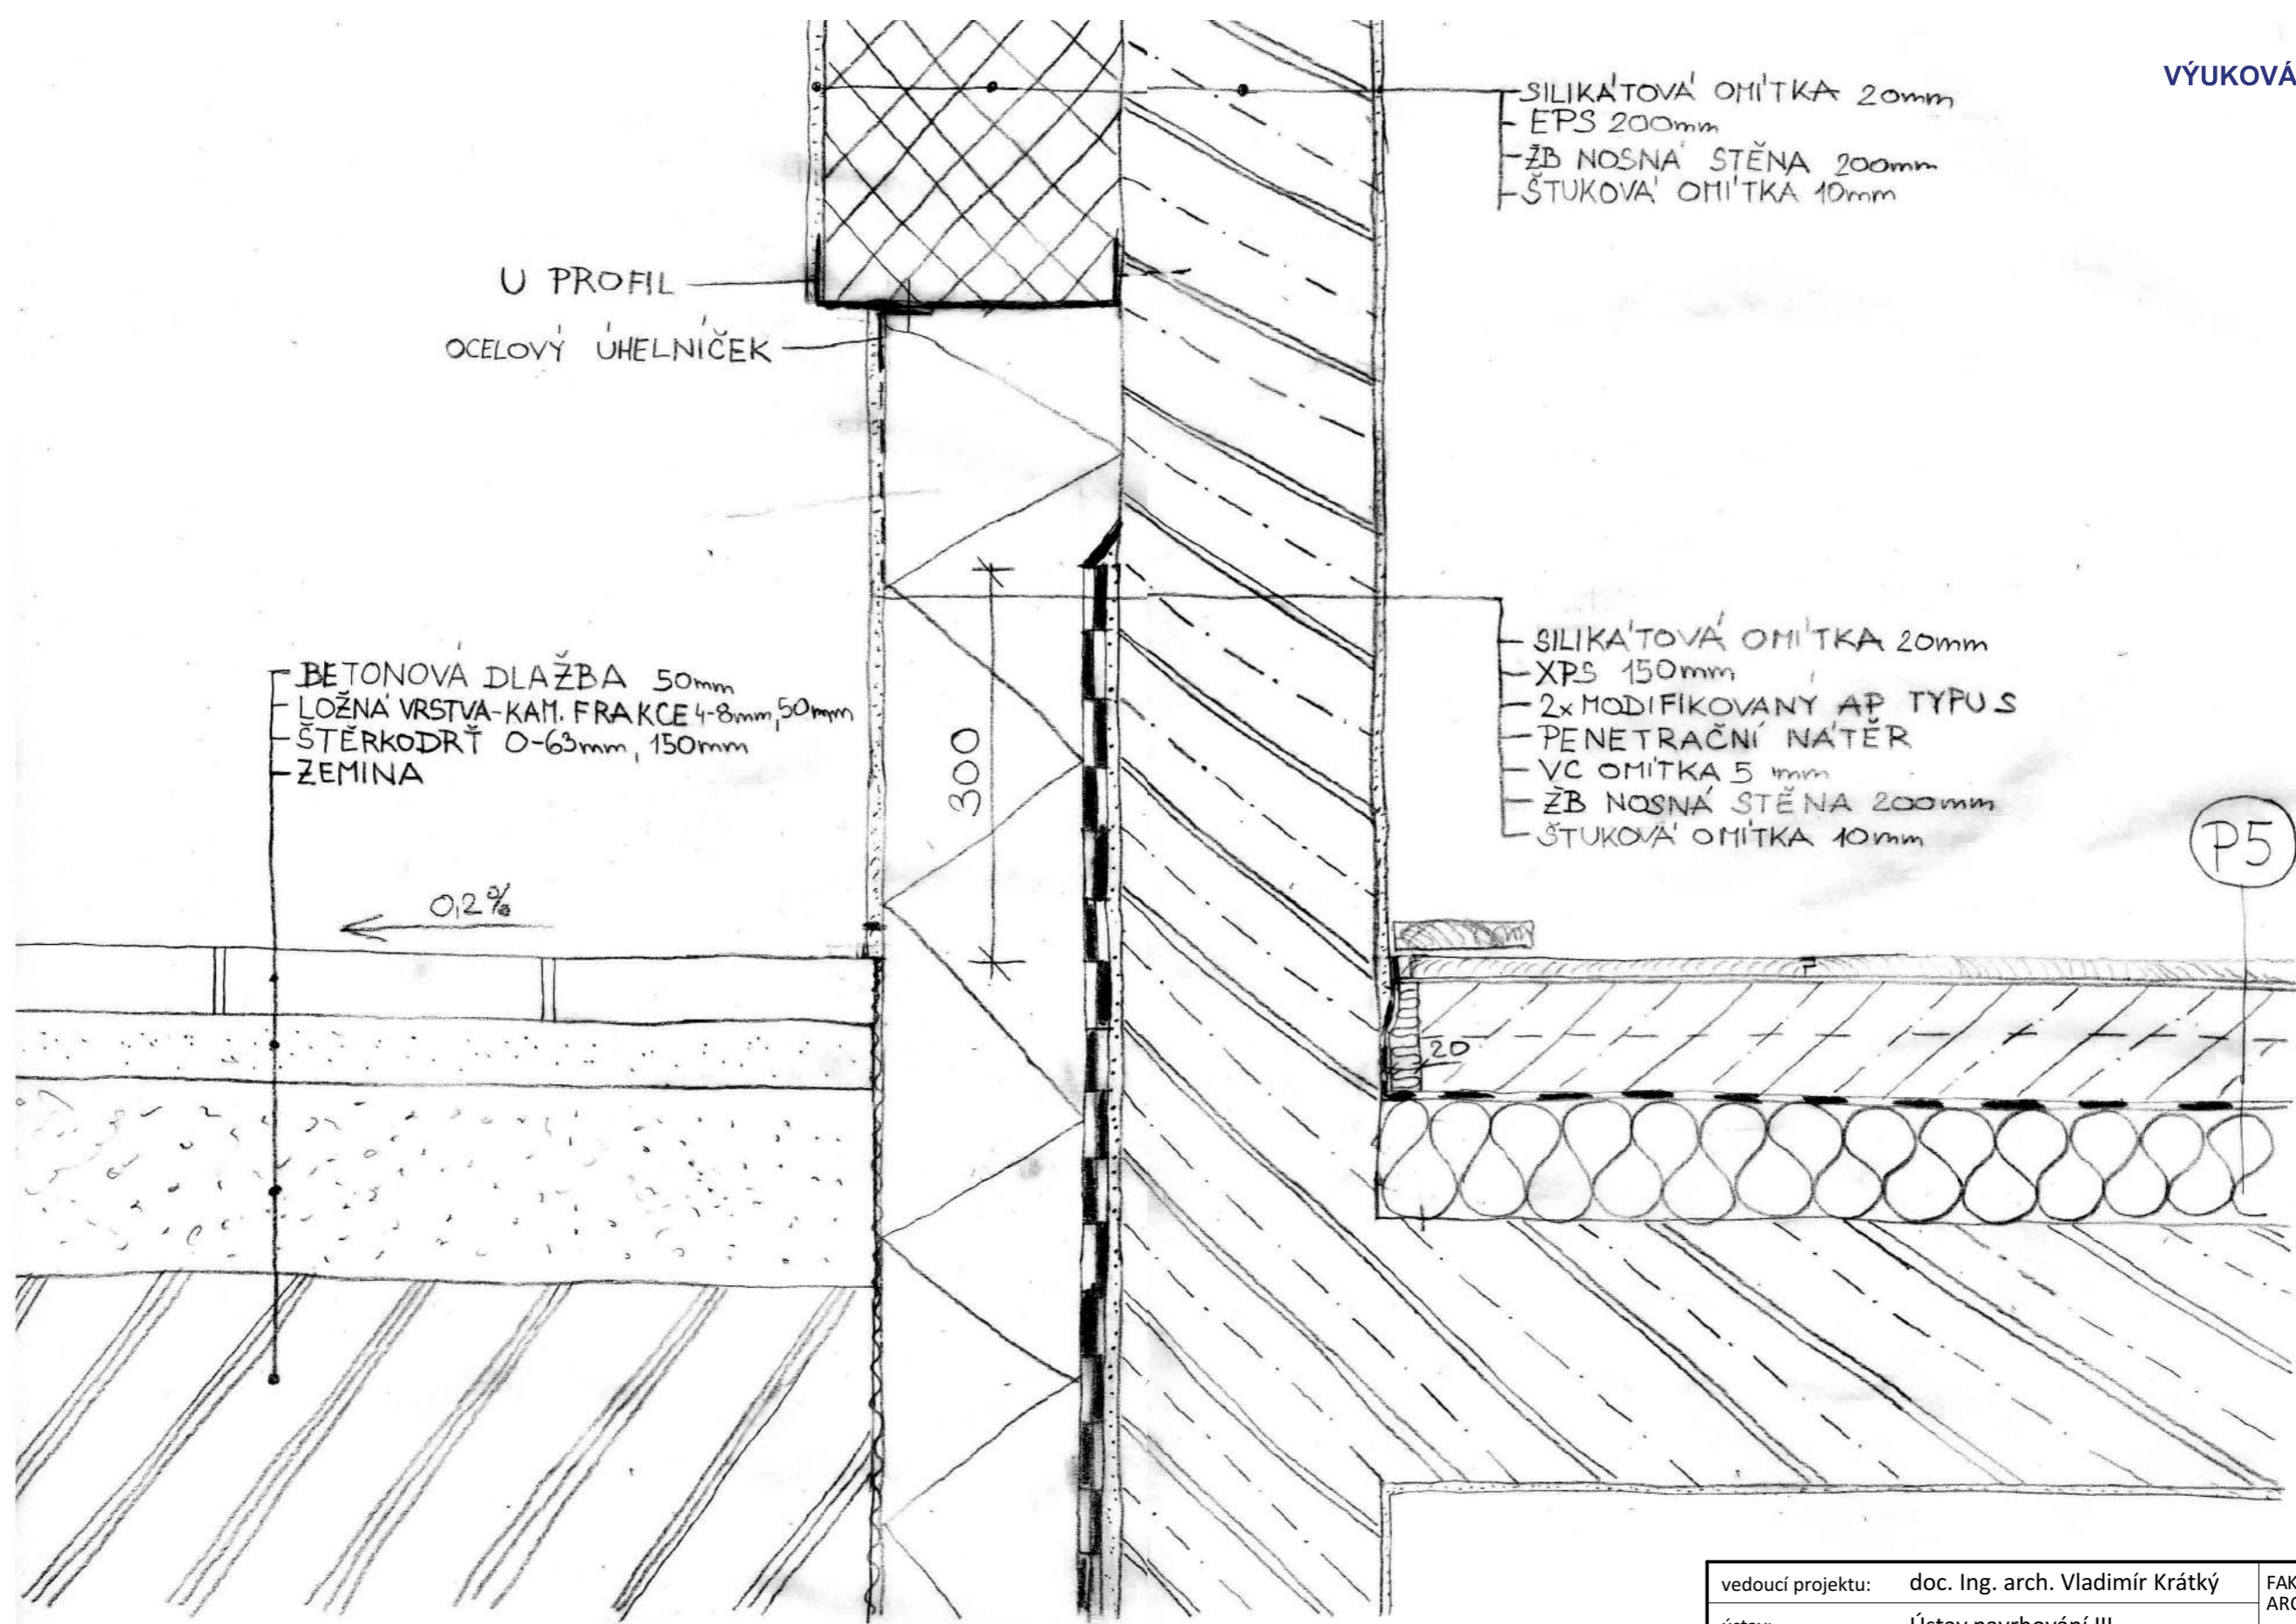 VÝUKOVÁ
SILIKÁTOVÁ OMÍTKA 20mm
EPS 200mm
ŽB NOSNÁ STĚNA 200mm
ŠTUKOVÁ OMÍTKA 10mm
U PROFIL
OCELOVÝ ÚHELNÍČEK
BETONOVÁ DLAŽBA 50mm
LOŽNÁ VRSTVA-KAM. FRAKCE 4-8mm, 50mm
ŠTĚRKODRŤ 0-63mm, 150mm
ZEMINA
SILIKÁTOVÁ OMÍTKA 20mm
XPS 150mm
2x MODIFIKOVANÝ AP TYPU S
PENETRAČNÍ NÁTĚR
VC OMÍTKA 5 mm
ŽB NOSNÁ STĚNA 200mm
ŠTUKOVÁ OMÍTKA 10mm
300
P5
0,2%
20
vedoucí projektu: doc. Ing. arch. Vladimír Krátký
FAK